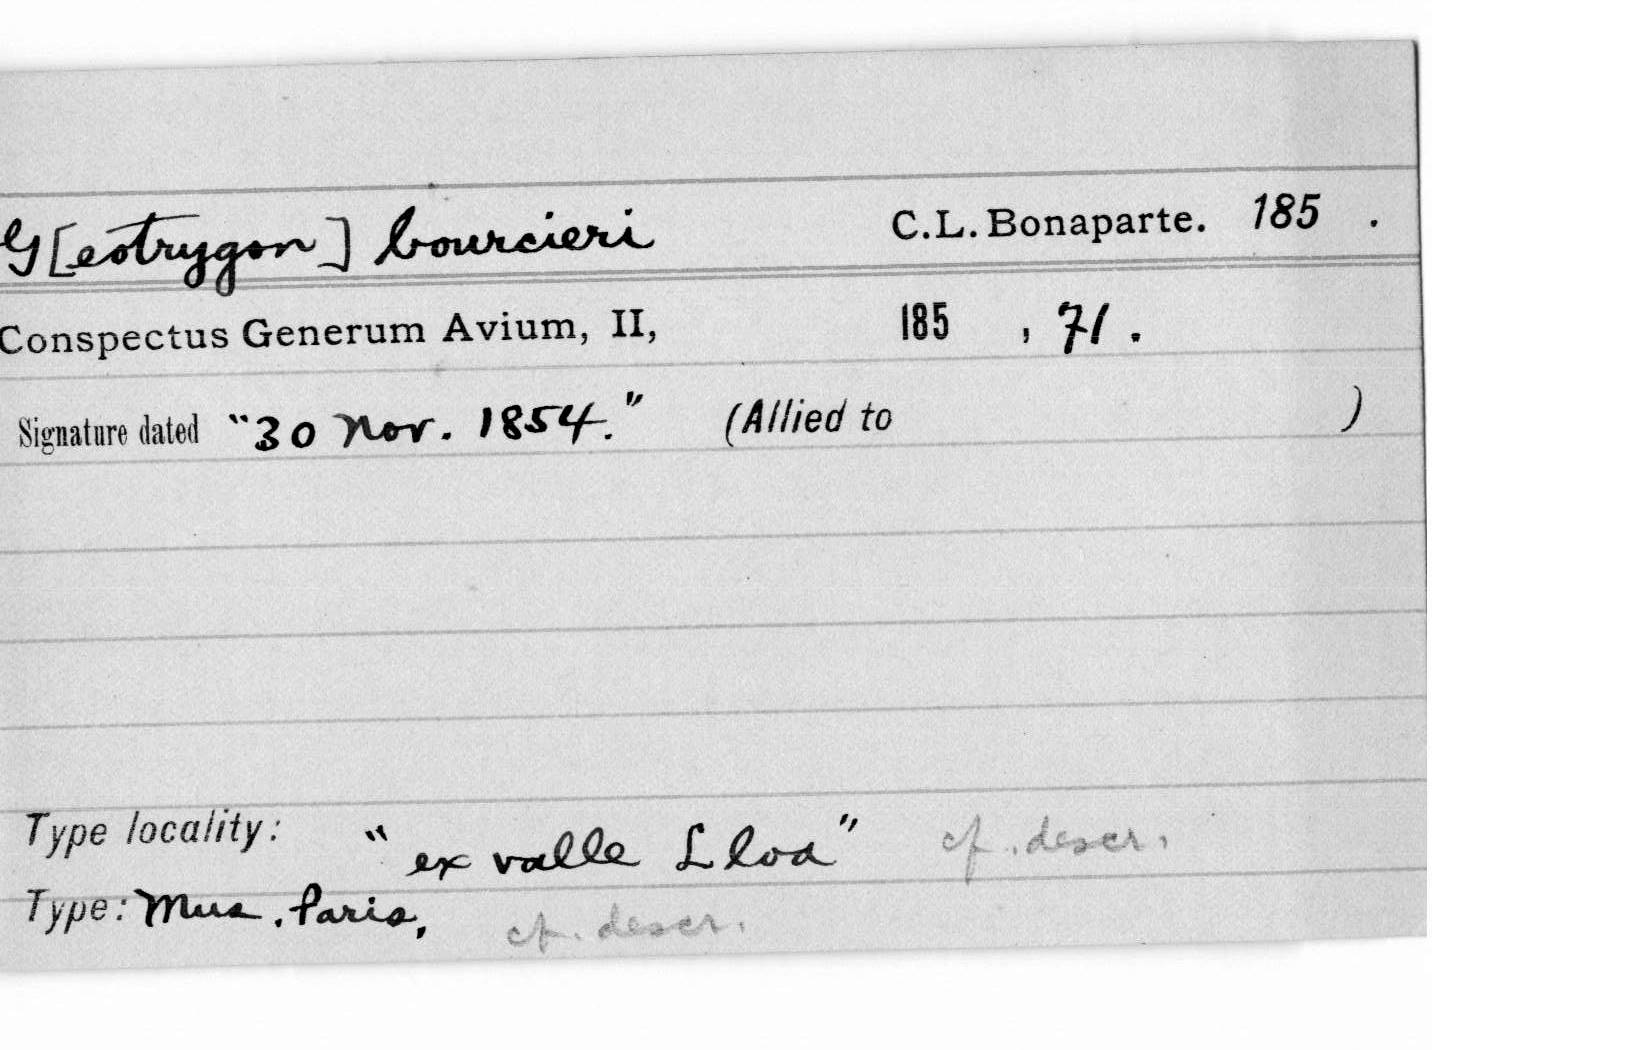 G[eotrygon] bourcieri C.L. Bonaparte. 185 .
Conspectus Generum Avium, II, 185 , 71.
Signature dated "30 Nov. 1854." (Allied to )
Type locality: "ex valle Lloa" cf. descr.
Type: Mus. Paris, cf. descr.